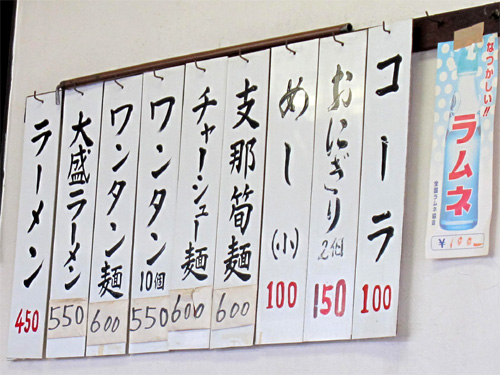 コーラ 100
おにぎり 2個 150
めし(小) 100
支那筍麺 600
チャーシュー麺 600
ワンタン 10個 550
ワンタン麺 600
大盛ラーメン 550
ラーメン 450
なつかしい!!
ラムネ